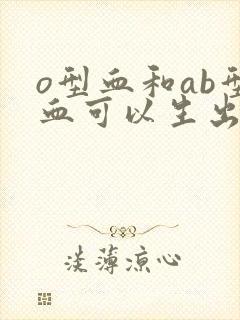 o型血和ab型
血可以生出
淡薄凉心